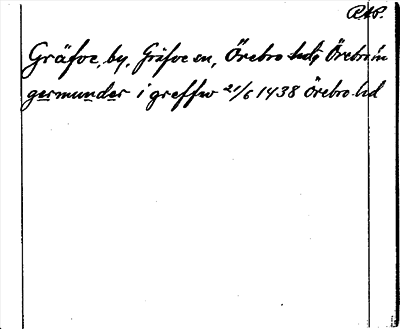 RAP.
Gräfve, by, Gräfve sn, Örebro hd, Örebro ln
germunder i greffwe 21/6 1438 Örebro hd